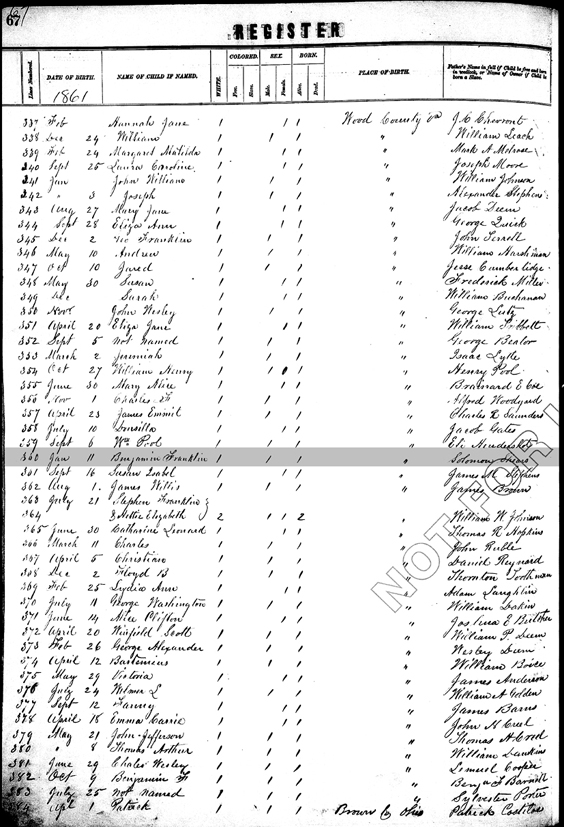 67
REGISTER
Line Numbered. DATE OF BIRTH. NAME OF CHILD IF NAMED. WHITE. COLORED. Free. Slave. SEX. Male. Female. BORN. Alive. Dead. PLACE OF BIRTH. Father's Name in full if Child be free and born in wedlock, or Name of Owner if Child be born a Slave.
1861
337 Feb Hannah Jane 1 1 1 Wood County Va J. C. Chevront
338 Dec 24 William 1 1 1 " William Leach
339 Feb 24 Margaret Matilda 1 1 1 " Mark A Melrose
340 Sept 25 Laura Caroline 1 1 1 " Joseph Moore
341 Jan John William 1 1 1 " William Johnson
342 " 3 Joseph 1 1 1 " Alexander Stephens
343 Aug 27 Mary Jane 1 1 1 " Jacob Deem
344 Sept 28 Eliza Ann 1 1 1 " George Quick
345 Dec 2 Franklin 1 1 1 " John Terrell
346 May 10 Andrew 1 1 1 " William Harshman
347 Oct 10 Jared 1 1 1 " Jesse Cumberlidge
348 May 30 Susan 1 1 1 " Frederick Miller
349 Dec Sarah 1 1 1 " William Buchanan
350 Nov John Wesley 1 1 1 " George Lutz
351 April 20 Eliza Jane 1 1 1 " William Tibbett
352 Sept 5 Not Named 1 1 1 " George Beator
353 March 2 Jeremiah 1 1 1 " Isaac Lytle
354 Oct 27 William Henry 1 1 1 " Henry Pool
355 June 30 Mary Alice 1 1 1 " Brainard E Coe
356 Nov 1 Charles F 1 1 1 " Alfred Woodyard
357 April 23 James Emmit 1 1 1 " Charles R Saunders
358 July 10 Drusilla 1 1 1 " Jacob Gates
359 Sept 6 Wm Pool 1 1 1 " Eli
360 Jan 11 Benjamin Franklin 1 1 1 " Solomon
361 Sept 16 Susan Isabel 1 1 1 " James M Stephens
362 Aug 1 James Willis 1 1 1 " James Brown
363 July 21 Stephen Franklin }
364 & Hettie Elizabeth } 2 1 1 2 " William W. Johnson
365 June 30 Catharine Leonard 1 1 1 " Thomas R Hopkins
366 March 11 Charles 1 1 1 " John Ruble
367 April 5 Christian 1 1 1 " David Reynard
368 Dec 2 Floyd B 1 1 1 " Thornton
369 Feb 25 Lydia Ann 1 1 1 " Adam Laughlin
370 July 11 George Washington 1 1 1 " William Dakin
371 June 14 Alice Clifton 1 1 1 " Joshua E Butcher
372 April 20 Winfield Scott 1 1 1 " William P. Deem
373 Feb 26 George Alexander 1 1 1 " Wesley Deem
374 April 12 Bartemius 1 1 1 " William Boice
375 May 29 Victoria 1 1 1 " James Anderson
376 July 24 Wilmer L 1 1 1 " William A Golden
377 Sept 12 Fanny 1 1 1 " James Barns
378 April 18 Emma Carrie 1 1 1 " John H Creel
379 May 21 John Jefferson 1 1 1 " Thomas H Cord
380 " 8 Thomas Arthur 1 1 1 " William Dawkins
381 June 29 Chales Wesley 1 1 1 " Lemuel Cooper
382 Oct 9 Benjamin F 1 1 1 " Benja F Barnett
383 July 25 Not Named 1 1 1 " Sylvester Porter
384 Apl 1 Patrick 1 1 1 Brown Co Ohio Patrick Costilos
NOT FOR